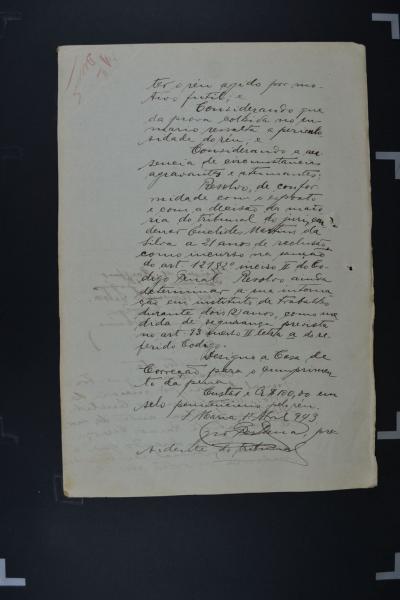 ter o réu agido por mo-
tivo futil; e
Considerando que
da prova colhida no su-
mario resalta a periculo-
sidade do réu, e
Considerando a au-
sencia de circunstancias
agravantes e atenuantes;
Resolvo, de confor-
midade com o exposto
e com a decisão da maio-
ria do tribunal do juri, con-
denar Euclides Martins da
Silva a 21 anos de reclusão
como incurso na sanção
do art. 121 § 2º inciso II do Co-
digo Penal. Resolvo ainda
determinar a sua interna-
ção em instituto de trabalho
durante dois (2) anos, como me-
dida de segurança prevista
no art. 93 inciso II letra a do re-
ferido Codigo.
Designo a Casa de
Correção para o cumprimen-
to da pena.
Custas e Cr$ 100,00 em
selo penitenciario pelo réu.
S. Maria, 1º Abril 943
pre-
sidente do tribunal